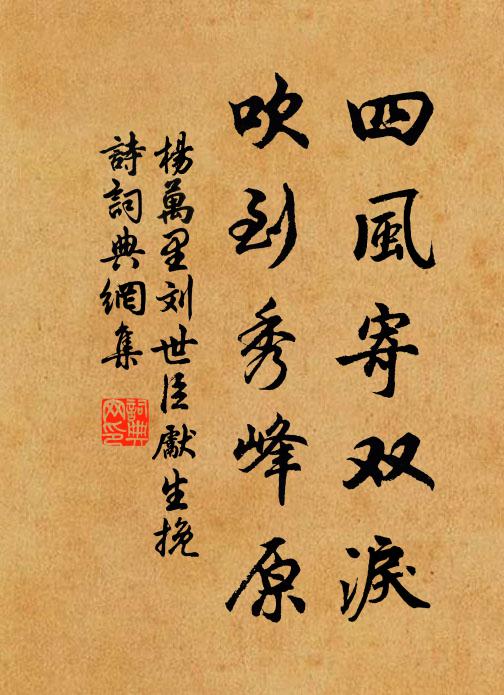 四風寄双淚
吹到秀峰原
楊萬里刘世臣獻生挽
詩詞典網集
詞典
网印